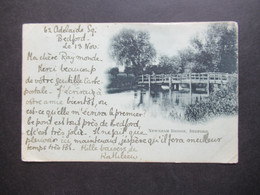 62 Adelaide Sq.
Bedford.
le 13 Nov.
Ma chère Raymonde
Merci beaucoup
de votre gentille carte
postale. J'écrirai à
votre amie bientôt, ou
est-ce qu'elle m'écrira le premier
le pont est tout près de Bedford,
c'est très joli. Il ne fait que
pleuvoir ici maintenant, j'espère qu'il fera meilleur
temps Mille baisers de
Kathleen
Newnham Bridge, Bedford.